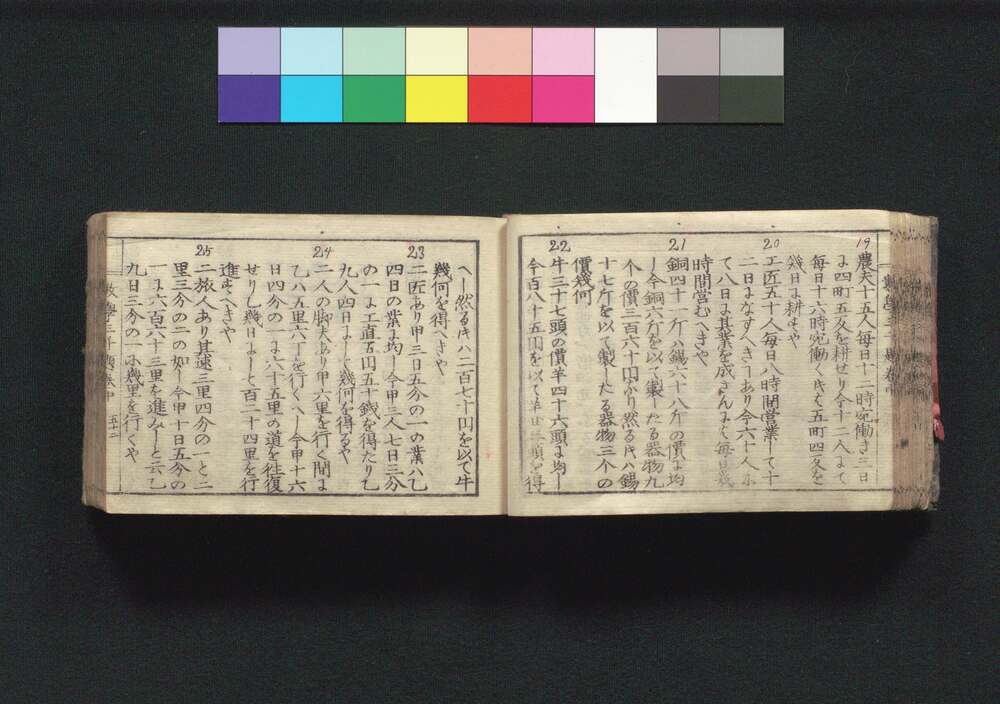 19
農夫十五人毎日十二時宛働き三日
に四町五反を耕せり今十二人にて
毎日十六時宛働くときは五町四反を
幾日に耕すや
20
工匠五十人毎日八時間營業して十
二日になすへきヿあり今六十人に
て八日に其業を成さんには毎日幾
時間営むへきや
21
銅四十一斤ハ錫六十八斤の價に均
し今銅六斤を以て製したる器物九
个の價三百六十円なり然るときハ錫
十七斤を以て製したる器物三个の
價幾何
22
牛三十七頭の價羊四十六頭に均し
今百八十五円を以て羊 頭を得
へし然るときハ二百七十円を以て牛
幾何を得へきや
23
二匠あり甲三日五分の一の業ハ乙
四日の業に均し今甲三人七日三分
の一に工直五円五十錢を得たり乙
九人四日にして幾何を得るや
24
二人の脚夫あり甲六里を行く間に
乙ハ五里六丁を行くへし今甲十六
日四分の一に六十五里の道を往復
せりし幾日にして百二十四里を行
進すへきや
25
二旅人あり其速三里四分の一と二
里三分の二の如し今甲十日五分の
一に六百六十三里を進みしと云乙
九日三分の一に幾里を行くや
數學三千題 巻中 五十二